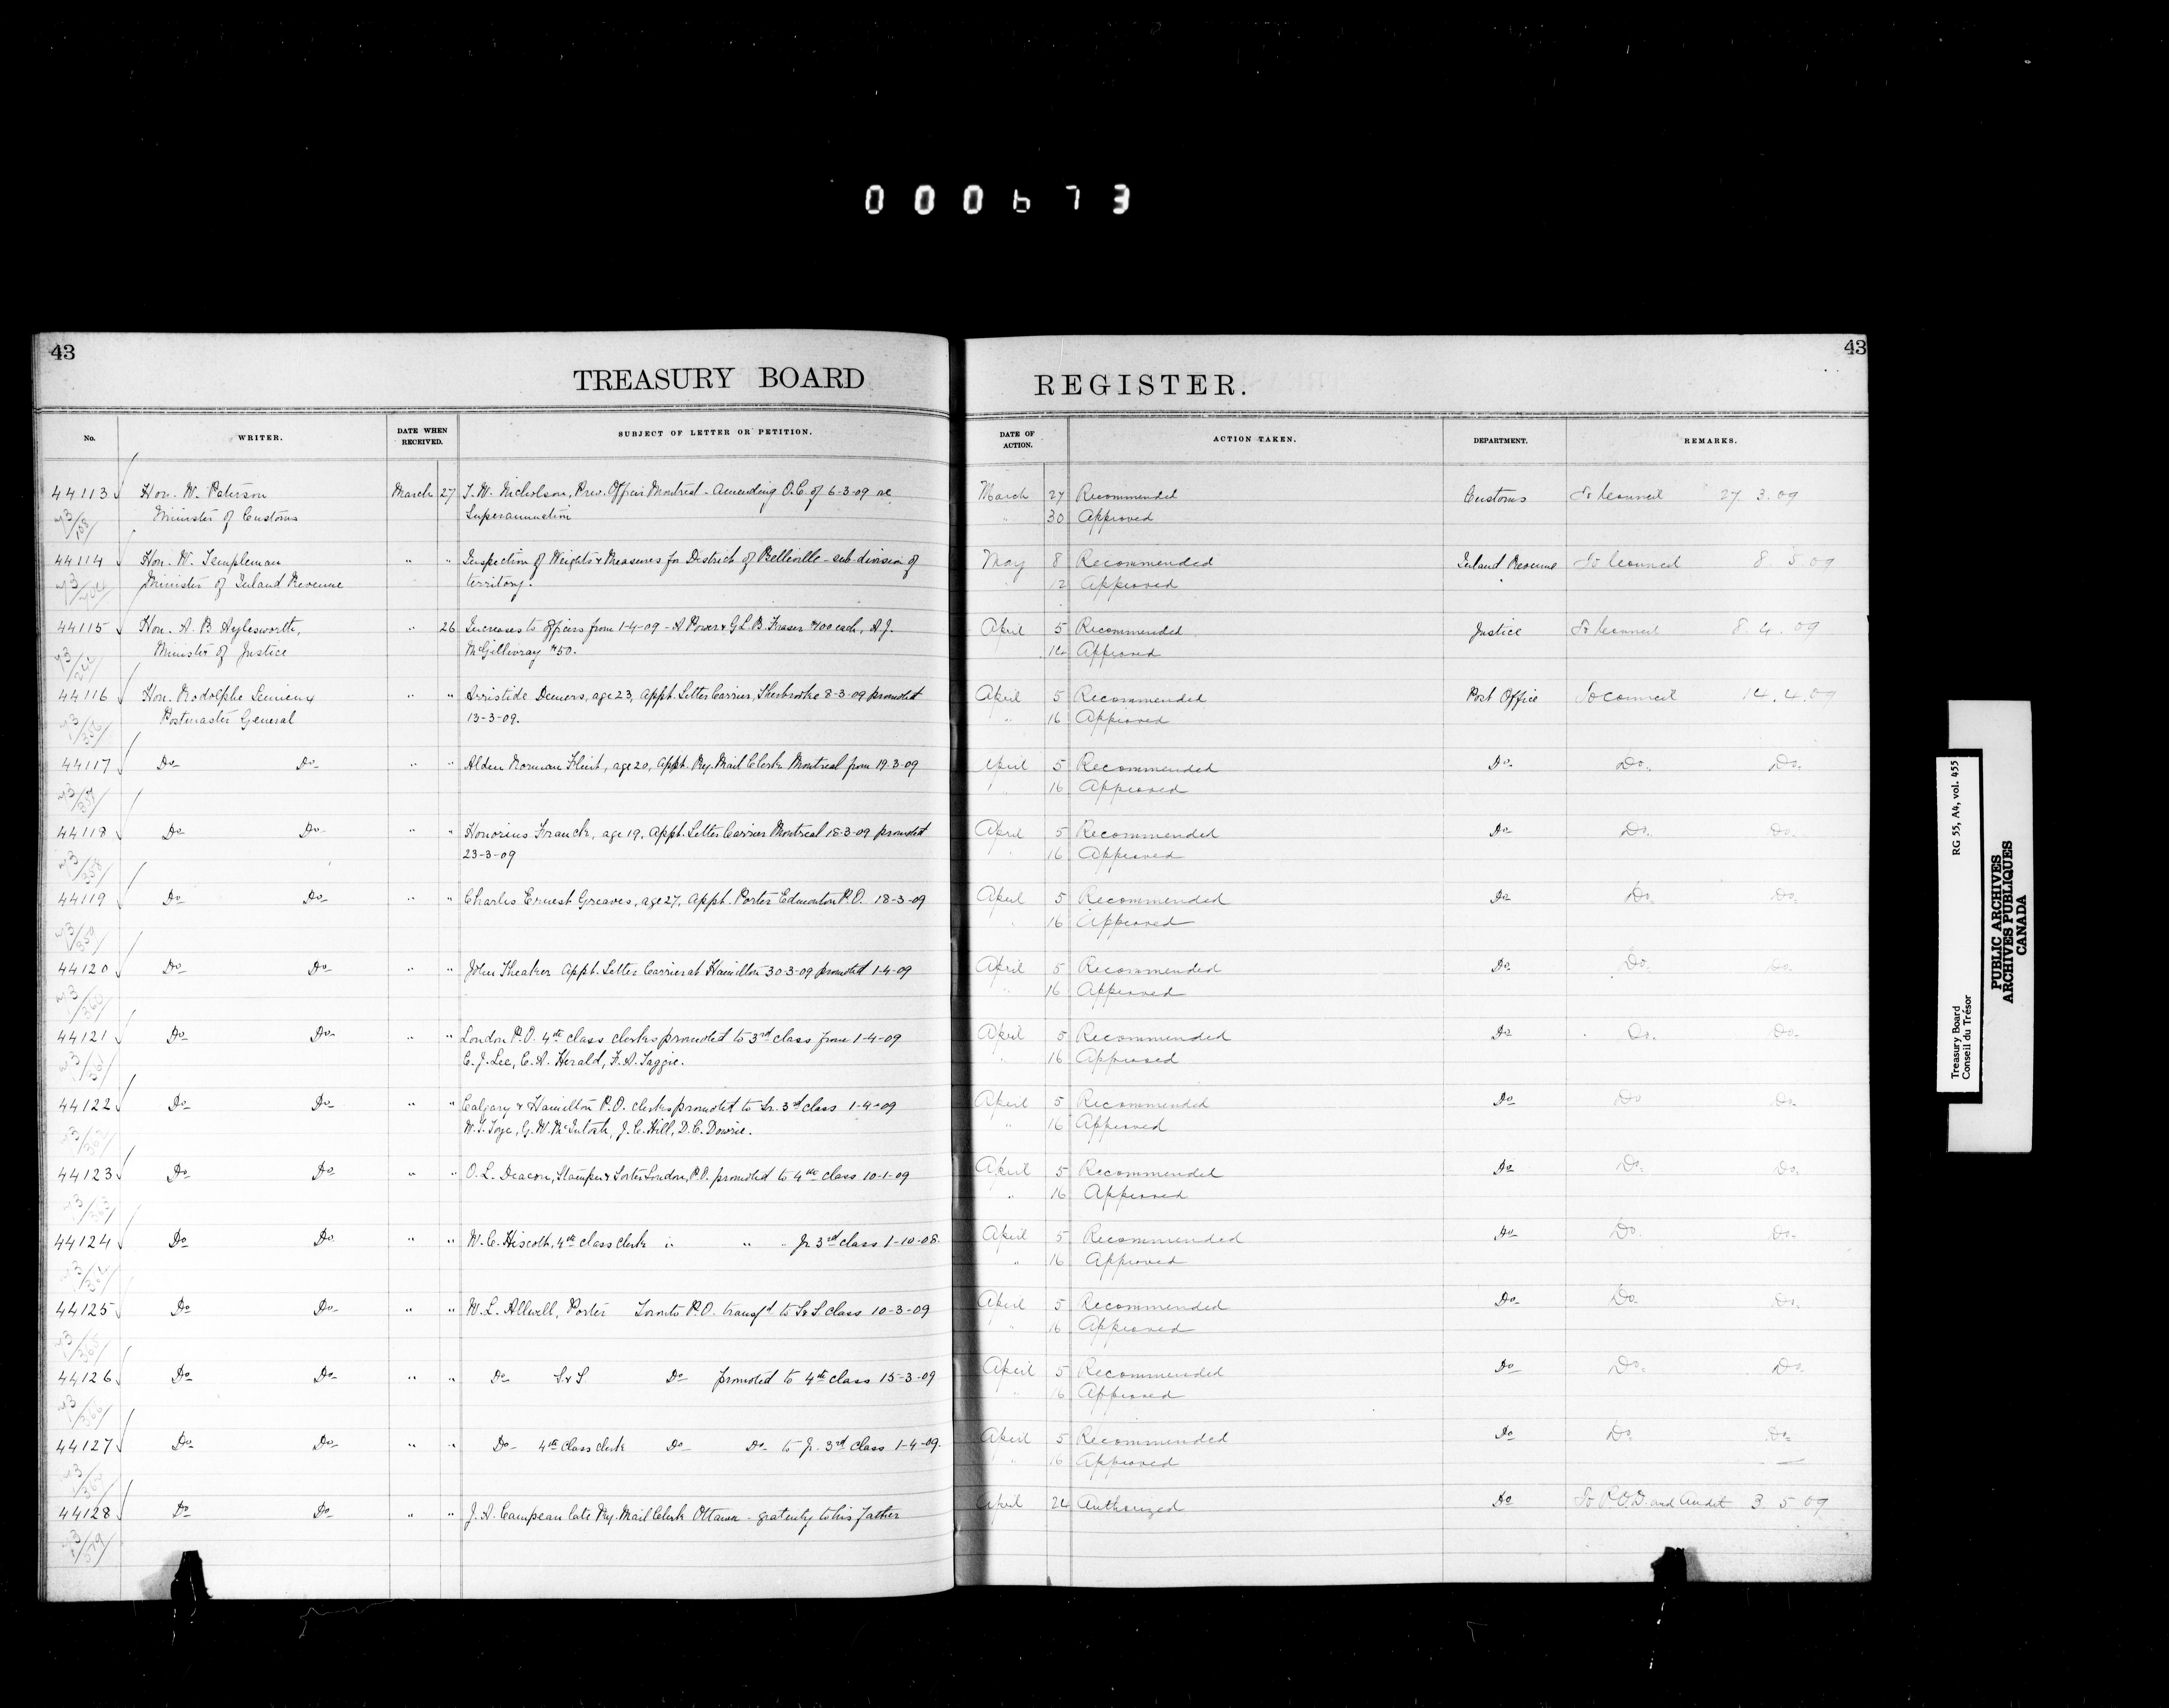 000673
43
TREASURY BOARD REGISTER.
43
No. WRITER. DATE WHEN RECEIVED. SUBJECT OF LETTER OR PETITION. DATE OF ACTION. ACTION TAKEN. DEPARTMENT. REMARKS.
44113 Hon. W. Paterson March 27 T. W. Nicholson, Prev. Officer Montreal - Amending O.C. of 6-3-09 re March 27 Recommended Customs To Council 27.3.09
Minister of Customs Superannuation " 30 Approved
44114 Hon. W. Templeman " " Inspection of Weights & Measures for District of Belleville - sub-division of May 8 Recommended Inland Revenue To Council 8.5.09
Minister of Inland Revenue territory. 12 Approved
44115 Hon. A. B. Aylesworth, " 26 Increases to officers from 1-4-09 - A Power & G.L.B. Fraser $400 each, A.J. April 5 Recommended Justice To Council 8.4.09
Minister of Justice McGillivray $50. 14 Approved
44116 Hon. Rodolphe Lemieux " " Arristide Demers, age 23, Appt. Letter Carrier, Sherbrooke 8-3-09 promoted April 5 Recommended Post Office To Council 14.4.09
Postmaster General 13-3-09. " 16 Approved
44117 Do Do " " Alden Norman Flint, age 20, Appt. Ry. Mail Clerk Montreal from 19-3-09 April 5 Recommended Do Do. Do.
" 16 Approved
44118 Do Do " " Honorius Franck, age 19, Appt. Letter Carrier Montreal 18-3-09 promoted April 5 Recommended Do Do. Do.
23-3-09 16 Approved
44119 Do Do " " Charles Ernest Greaves, age 27, Appt. Porter Edmonton P.O. 18-3-09 April 5 Recommended Do Do. Do.
16 Approved
44120 Do Do " " John Theaker Appt. Letter Carrier at Hamilton 30-3-09 promoted 1-4-09 April 5 Recommended Do Do. Do.
" 16 Approved
44121 Do Do " " London P.O. 4th class clerks promoted to 3rd class from 1-4-09 April 5 Recommended Do Do. Do.
C. J. Lee, C. A. Herald, F. A. Taggie. " 16 Approved
44122 Do Do " " Calgary & Hamilton P.O. clerks promoted to Sr. 3rd class 1-4-09 April 5 Recommended Do Do Do.
G. W. McIntosh, J. C. Hill, D. C. Dowrie. " 16 Approved
44123 Do Do " " O. L. Deacon, Stamper & Sorter London, P.O. promoted to 4th class 10-1-09 April 5 Recommended Do Do. Do.
" 16 Approved
44124 Do Do " " W. C. Hiscott, 4th class clerk " " " Jr 3rd class 1-10-08. April 5 Recommended Do Do. Do.
" 16 Approved
44125 Do Do " " W. L. Allwell, Porter Toronto P.O. transfd to S&S class 10-3-09 April 5 Recommended Do Do. Do.
" 16 Approved
44126 Do Do " " Do S&S Do promoted to 4th class 15-3-09 April 5 Recommended Do Do. Do.
" 16 Approved
44127 Do Do " " Do 4th class clerk Do Do to Jr. 3rd class 1-4-09. April 5 Recommended Do Do. Do.
" 16 Approved
44128 Do Do " " J. A. Campeau late Ry. Mail Clerk Ottawa - gratuity to his father April 24 Authorized Do To P.O.D. and Audit 3.5.09
Treasury Board RG 55, A4, vol. 455
Conseil du Trésor
PUBLIC ARCHIVES
ARCHIVES PUBLIQUES
CANADA